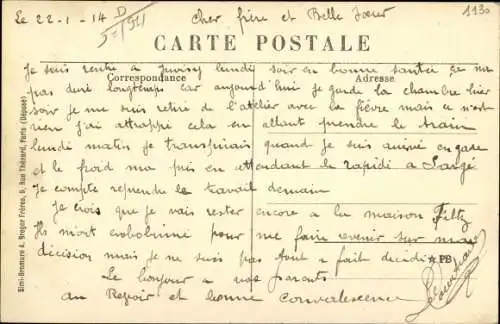 Le 22-1-14
Cher frère et Belle Soeur
1130
CARTE POSTALE
Correspondance
Adresse
Je suis rentré a Juvisy lundi soir en bonne santée ça na
pas duré longtemps car aujourd'hui je garde la chambre hier
soir je me suis retiré de l'atelier avec la fièvre mais ce n'est
rien j'ai attrappé cela en allant prendre le train
lundi matin je transpirais quand je suis arrivé en gare
et le froid ma pris en attendant le rapidi a
Je compte reprendre le travail demain
Je crois que je vais rester encore a la maison Filtz
Ils mont pour me faire revenir sur ma
décision mais je ne suis pas tout a fait décidé
☆ PB
Le bonjour a nos parents
au Revoir et bonne convalescence
Simi-Bromure A. Breger Frères, 9, Rue Thénard, Paris (Déposé)